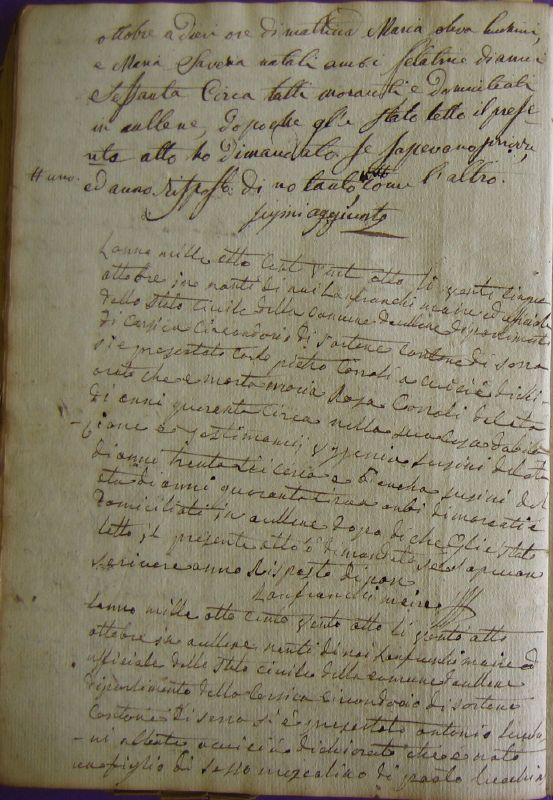 ottobre a dieci ore di mattina Maria
e Maria Saveria natali ambi filatrice di anni
Sessanta Circa tutti moranti e Domiciliati
in aullene, dopo che gl'è stato letto il prese
nte atto ho Dimandato Se Sapevano
# uno. ed anno risposto di no tanto l'altro.
aggiunto
Lanno mille otto Cento vente otto li venti cinque
ottobre in nanti di noi Lanfranchi maire ed officiale
dello Stato Civile della comune d'aullene dipartimento
di Corsica Circondario di Sartene Contone di Serra
si e presentato Carlo pietro Corroli a cui ci è dichi
arato che e morta maria Rosa Corroli di età
di anni quaranta Circa nella sua Casa d'abita
zione e testimonii susini di età
di anni trenta sei circa e Bianca susini del
età di anni quaranta Circa anbi dimoranti e
Domiciliati in aullene dopo di che Gli e stato
letto il presente atto o dimandato se sapevan
scrivere anno Risposto di non
Lanfranchi maire
Lanno mille otto cento vento otto li vento otto
ottobre in aullene nanti di noi Lanfranchi maire ed
ufficiale dello Stato civile della comune d'aullene
Dipartimento della Corsica Circondario di Sartene
Contone di serra si e presentato antonio
a cui ci è dichiarato che e nato
uno figlio di sesso mascolino di paolo